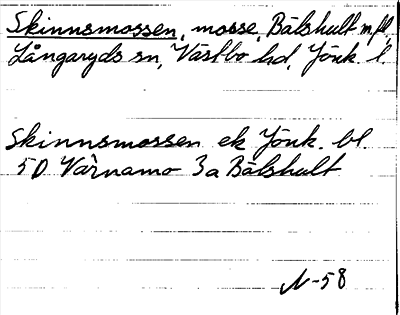 Skinnsmossen, mosse, Bälshult m fl,
Långaryds sn, Västbo hd, Jönk. l.
Skinnsmossen ek Jönk. bl.
5D Värnamo 3a Bälshult
N-58